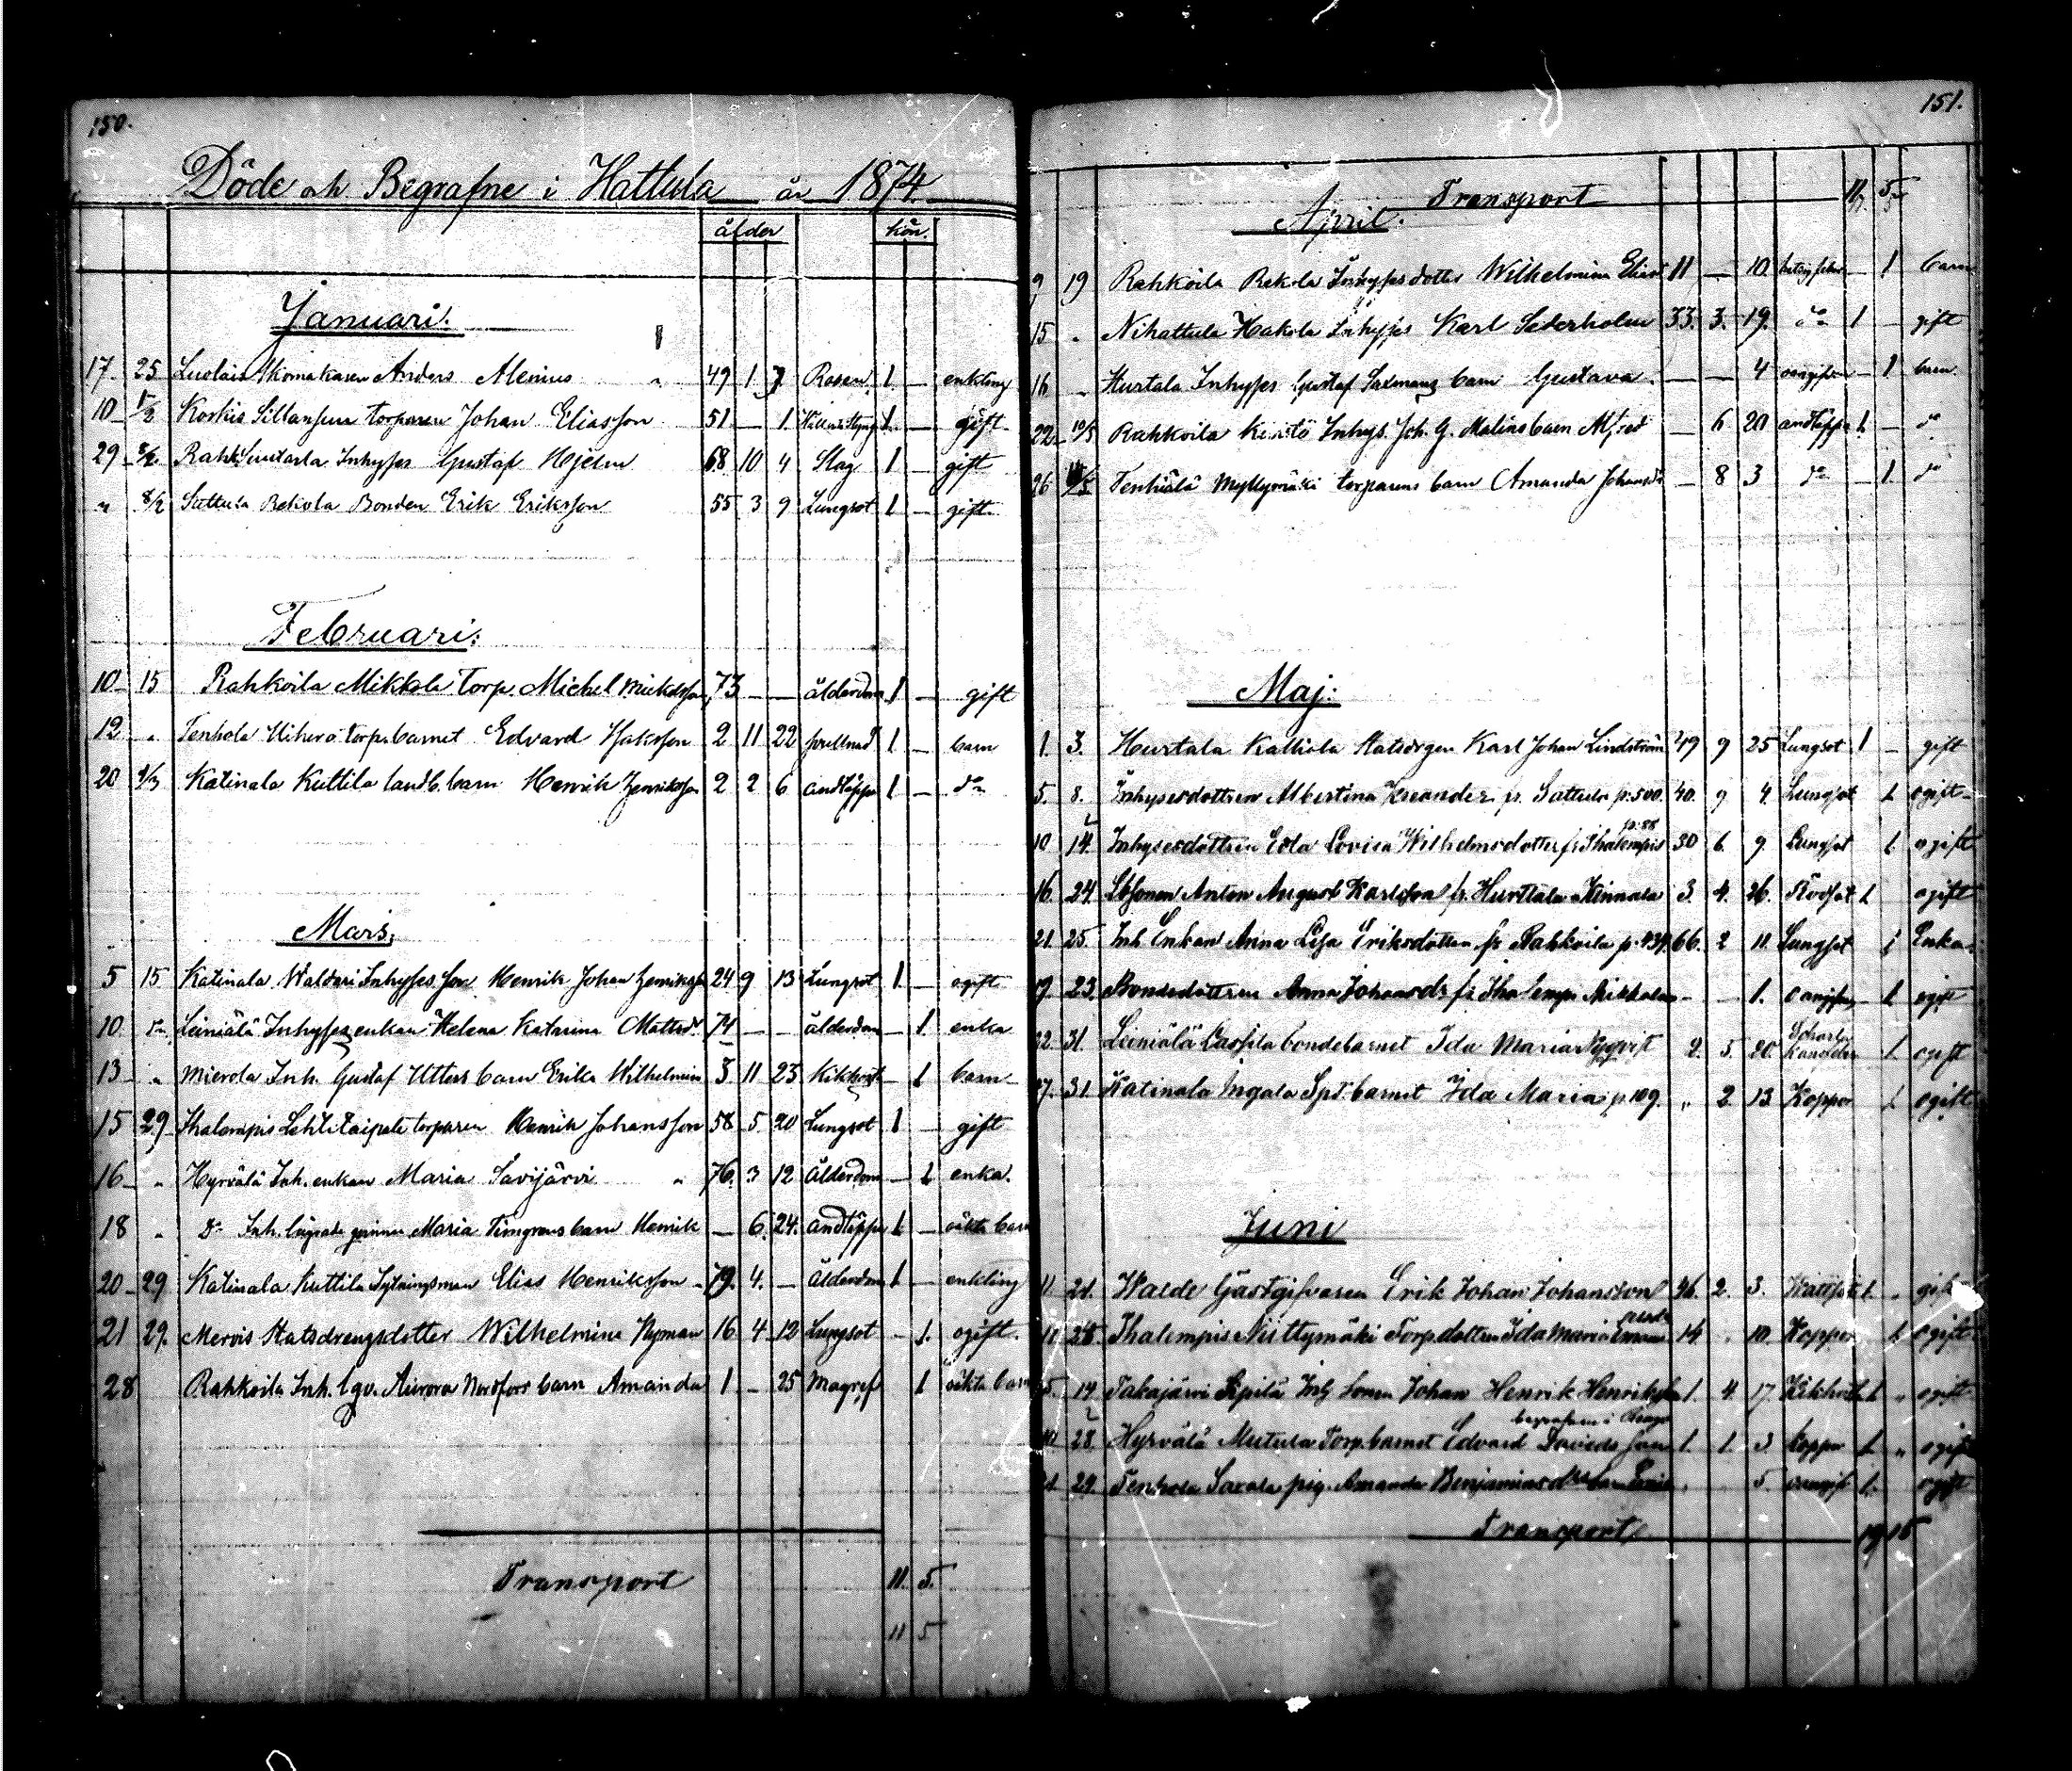 150.
Döde och Begrafne i Hattula år 1874.
ålder kön.
Januari:
17. 25 Skomakaren Anders Alenius " 49 1 7 Rosen 1 — enkling
10 1/2 Torparen Johan Eliasson 51 — 1. 1. — gift
29 Inhyses Gustaf Hjelm 68 10 4 Slag 1 — gift
" 8/2 Sattula Rekola Bonden Erik Eriksson 55 3 9 Lungsot 1 — gift
Februari:
10 15 Rahkoila Mikkola torp. Michel Mickelsson 73 — — ålderdom 1 — gift
12 " Tenhola Uihero torp.barnet Edvard Isaksson 2 11 22 1 — barn
20 1/3 Katinala Kuttila landb. barn Henrik Henriksson 2 2 6 andtäppa 1 — do
Mars,
5 15 Katinala Waldari Inhyses son Henrik Johan Henrikss 24 9 13 Lungsot 1 — ogift
10 do Leiniälä Inhyses enkan Helena Katarina Mattsdr 74 — — ålderdom — 1. enka
13 " Mierola Inh. Gustaf Utters barn Erika Wilhelmina 3 11 23 Kikhost — 1 barn
15 29 Ihalempis Lehtitaipale torparen Henrik Johansson 58 5. 20 Lungsot 1 — gift
16 " Hyrvälä Inh. enkan Maria Savijärvi " 76. 3 12 Ålderdom — 1 enka.
18 " Do Inh. Maria Timgrens barn Henrik — 6. 24. andtäppa 1 — oäkta barn
20 29 Katinala Kuttila Sytningsman Elias Henriksson 79. 4. — Ålderdom 1 — enkling
21 29. Mervis Statsdrengsdotter Wilhelmina Nyman 16 4 12 Lungsot — 1. ogift.
28 Rahkoila Inh. Aurora Nordfors barn Amanda 1 — 25 Magref 1 oäkta barn
Transport 11. 5.
11 5
151.
Transport 11. 5.
April:
9 19 Rahkoila Rekola Inhyses dotter Wilhelmina 11 — 10 — 1 barn
15 " Nihattula Hakola Inhyses Karl Sederholm 33. 3. 19. do 1 — gift
16 — Hurtala Inhyses Gustaf Saxmans barn Gustava — — 4 — 1 barn
22 10/5 Rahkoila Inhys. Joh. G. Malins barn Alfred — 6 20 andtäppa 1. — do
26 Tenhiälä Myllymäki torparens barn Amanda Johansdr — 8 3 do — 1. do
Maj:
1. 3. Hurtala Kalliola Statsdrgen Karl Johan Lindström 49 9 25 Lungsot 1 — gift
5. 8. Inhysesdottren Albertina fr. Sattula p. 500. 40. 9 4. Lungsot 1. ogift
10 14. Inhysesdottren Eva Lovisa Wilhelmsdotter fr Ihalempis p. 88 30 6. 9. Lungsot 1. ogift
16. 24. Anton August Karlsson fr. Hurttala 3. 4. 26. Rödsot 1. ogift
21. 25 Inh Enkan Anna Lisa Eriksdotter fr Rahkoila p. 439. 66. 2 11. Lungsot 1 Enka.
19. 23. Bondedottren Anna Johansdr fr Ihalempi Mikkola — — 1. 1. ogift
22. 31. Leiniälä bondebarnet Ida Maria Nyqvist 2. 5. 20. 1. ogift
27. 31. Katinala Ingala barnet Ida Maria p 109. " 2. 13. Koppor 1. ogift
Juni
11 21. Walde Gästgifvaren Erik Johan Johansson 46. 2. 3. 1. " gift
Ihalempis Niittymäki Torp.dottren Ida Maria 14 . 10. Koppor 1. ogift
14. Takajärvi Sipilä Inh sonen Johan Henrik Henriksson 1. 4. 17. Kikhost 1. " ogift
begrafven i
28. Hyrvälä Mutula Torp.barnet Edvard Davidsson 1. 1. 3 koppor 1. " ogift
29. Tenhola Saxala pig. Amanda Benjaminsdr 5. 1. ogift
Transport 19 15